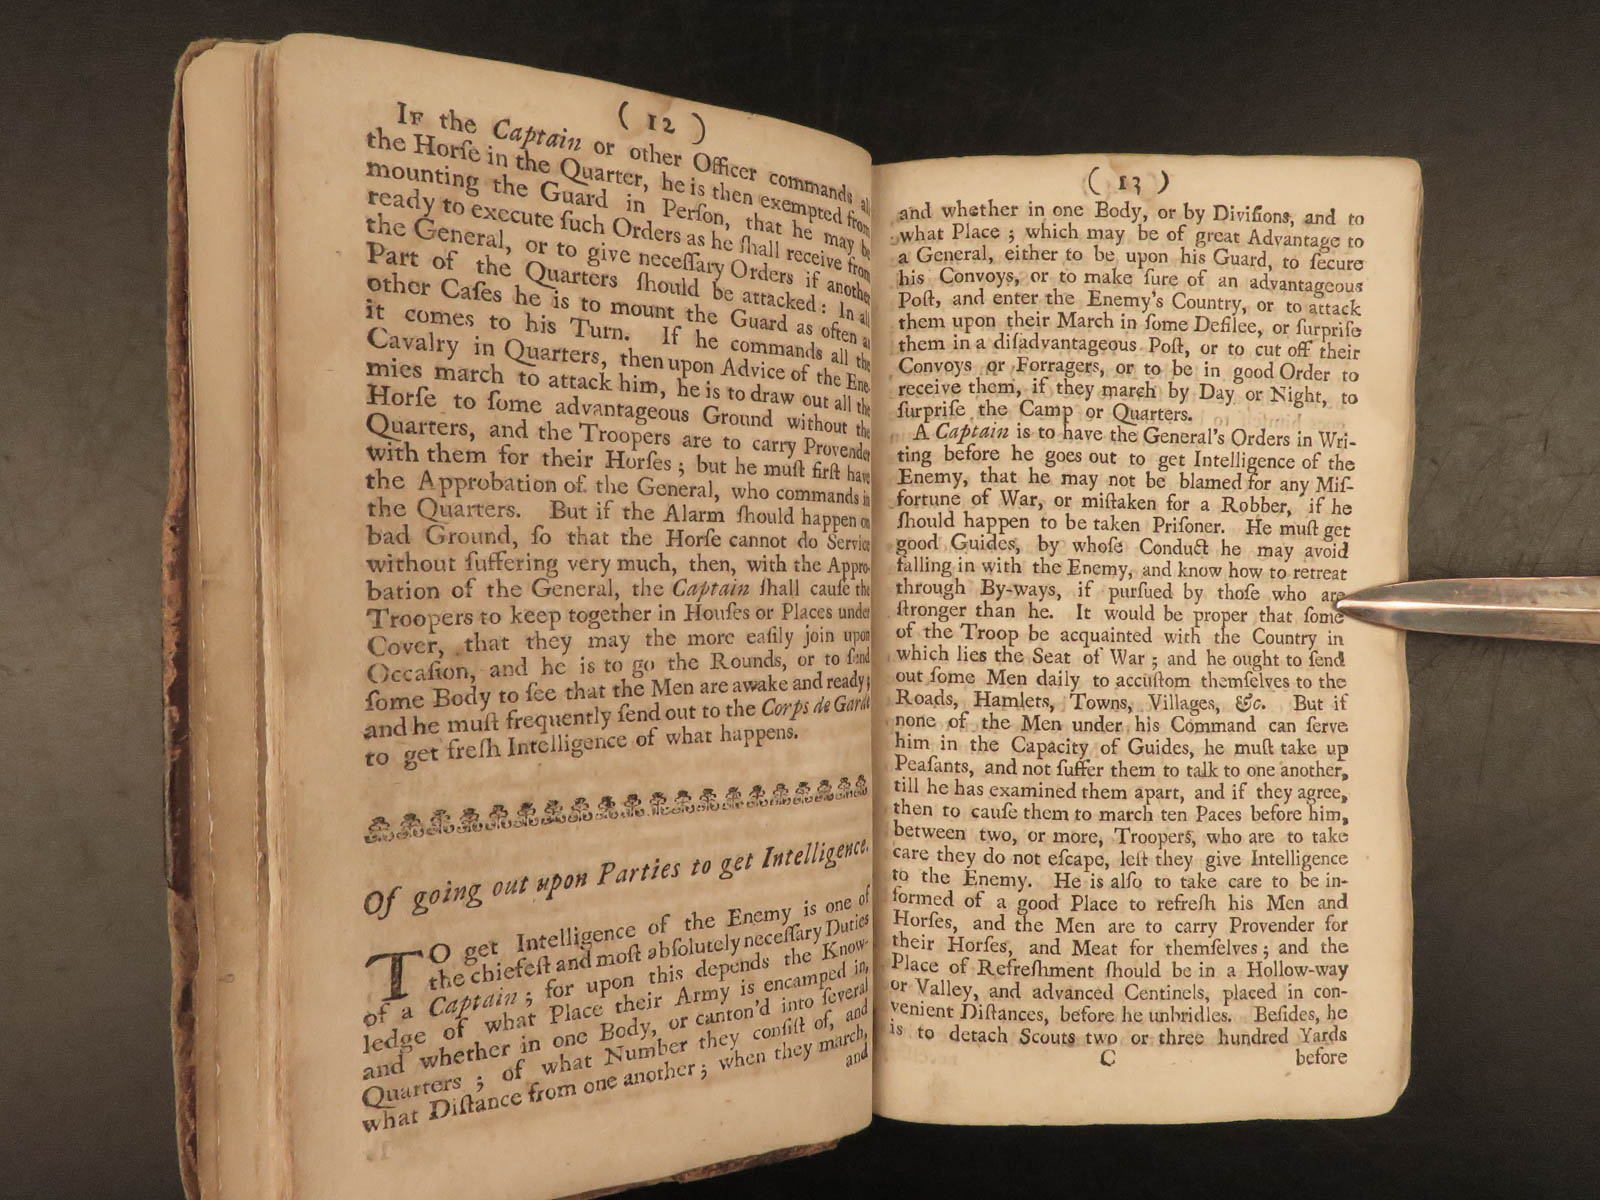 ( 12 )
IF the Captain or other Officer commands all
the Horſe in the Quarter, he is then exempted from
mounting the Guard in Perſon, that he may be
ready to execute ſuch Orders as he ſhall receive from
the General, or to give neceſſary Orders if another
Part of the Quarters ſhould be attacked: In all
other Caſes he is to mount the Guard as often as
it comes to his Turn. If he commands all the
Cavalry in Quarters, then upon Advice of the Ene-
mies march to attack him, he is to draw out all the
Horſe to ſome advantageous Ground without the
Quarters, and the Troopers are to carry Provender
with them for their Horſes; but he muſt firſt have
the Approbation of the General, who commands in
the Quarters. But if the Alarm ſhould happen on
bad Ground, ſo that the Horſe cannot do Service
without ſuffering very much, then, with the Appro-
bation of the General, the Captain ſhall cauſe the
Troopers to keep together in Houſes or Places under
Cover, that they may the more eaſily join upon
Occaſion, and he is to go the Rounds, or to ſend
ſome Body to ſee that the Men are awake and ready;
and he muſt frequently ſend out to the Corps de Gardt
to get freſh Intelligence of what happens.
Of going out upon Parties to get Intelligence.
TO get Intelligence of the Enemy is one of
the chiefeſt and moſt abſolutely neceſſary Duties
of a Captain; for upon this depends the Know-
ledge of what Place their Army is encamped in,
and whether in one Body, or canton'd into ſeveral
Quarters; of what Number they conſiſt of, and
what Diſtance from one another; when they march,
and
( 13 )
and whether in one Body, or by Diviſions, and to
what Place; which may be of great Advantage to
a General, either to be upon his Guard, to ſecure
his Convoys, or to make ſure of an advantageous
Poſt, and enter the Enemy's Country, or to attack
them upon their March in ſome Defilee, or ſurpriſe
them in a diſadvantageous Poſt, or to cut off their
Convoys or Forragers, or to be in good Order to
receive them, if they march by Day or Night, to
ſurpriſe the Camp or Quarters.
A Captain is to have the General's Orders in Wri-
ting before he goes out to get Intelligence of the
Enemy, that he may not be blamed for any Miſ-
fortune of War, or miſtaken for a Robber, if he
ſhould happen to be taken Priſoner. He muſt get
good Guides, by whoſe Conduct he may avoid
falling in with the Enemy, and know how to retreat
through By-ways, if purſued by thoſe who are
ſtronger than he. It would be proper that ſome
of the Troop be acquainted with the Country in
which lies the Seat of War; and he ought to ſend
out ſome Men daily to accuſtom themſelves to the
Roads, Hamlets, Towns, Villages, &c. But if
none of the Men under his Command can ſerve
him in the Capacity of Guides, he muſt take up
Peaſants, and not ſuffer them to talk to one another,
till he has examined them apart, and if they agree,
then to cauſe them to march ten Paces before him,
between two, or more, Troopers, who are to take
care they do not eſcape, leſt they give Intelligence
to the Enemy. He is alſo to take care to be in-
formed of a good Place to refreſh his Men and
Horſes, and the Men are to carry Provender for
their Horſes, and Meat for themſelves; and the
Place of Refreſhment ſhould be in a Hollow-way
or Valley, and advanced Centinels, placed in con-
venient Diſtances, before he unbridles. Beſides, he
is to detach Scouts two or three hundred Yards
C before